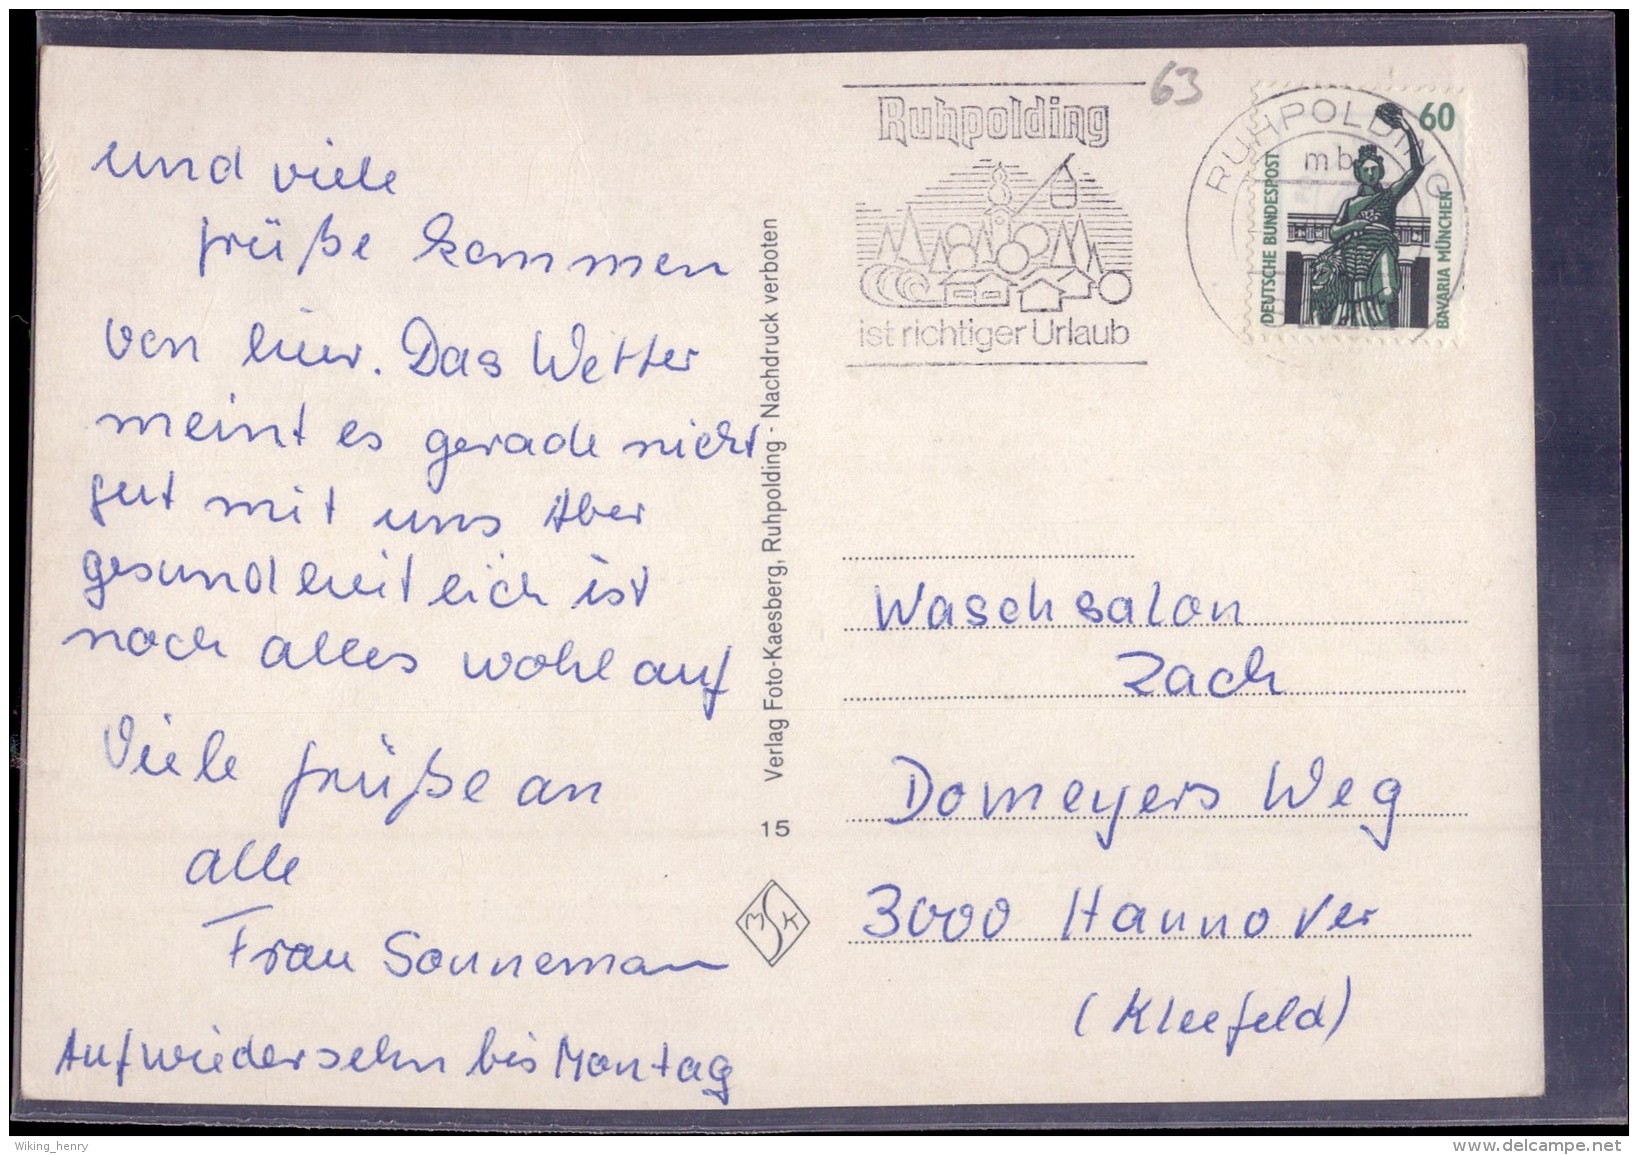 und viele
Grüße kommen
von hier. Das Wetter
meint es gerade nicht
gut mit uns Aber
gesundheitlich ist
noch alles wohlauf
Viele Grüße an
alle
Frau Sonnemann
Aufwiedersehn bis Montag
Verlag Foto-Kaesberg, Ruhpolding - Nachdruck verboten
15
MSK
Ruhpolding
ist richtiger Urlaub
63
RUHPOLDING
mb
60
DEUTSCHE BUNDESPOST
BAVARIA MÜNCHEN
Waschsalon
Zach
Domeyers Weg
3000 Hannover
(Kleefeld)
Wiking_henry
www.delcampe.net